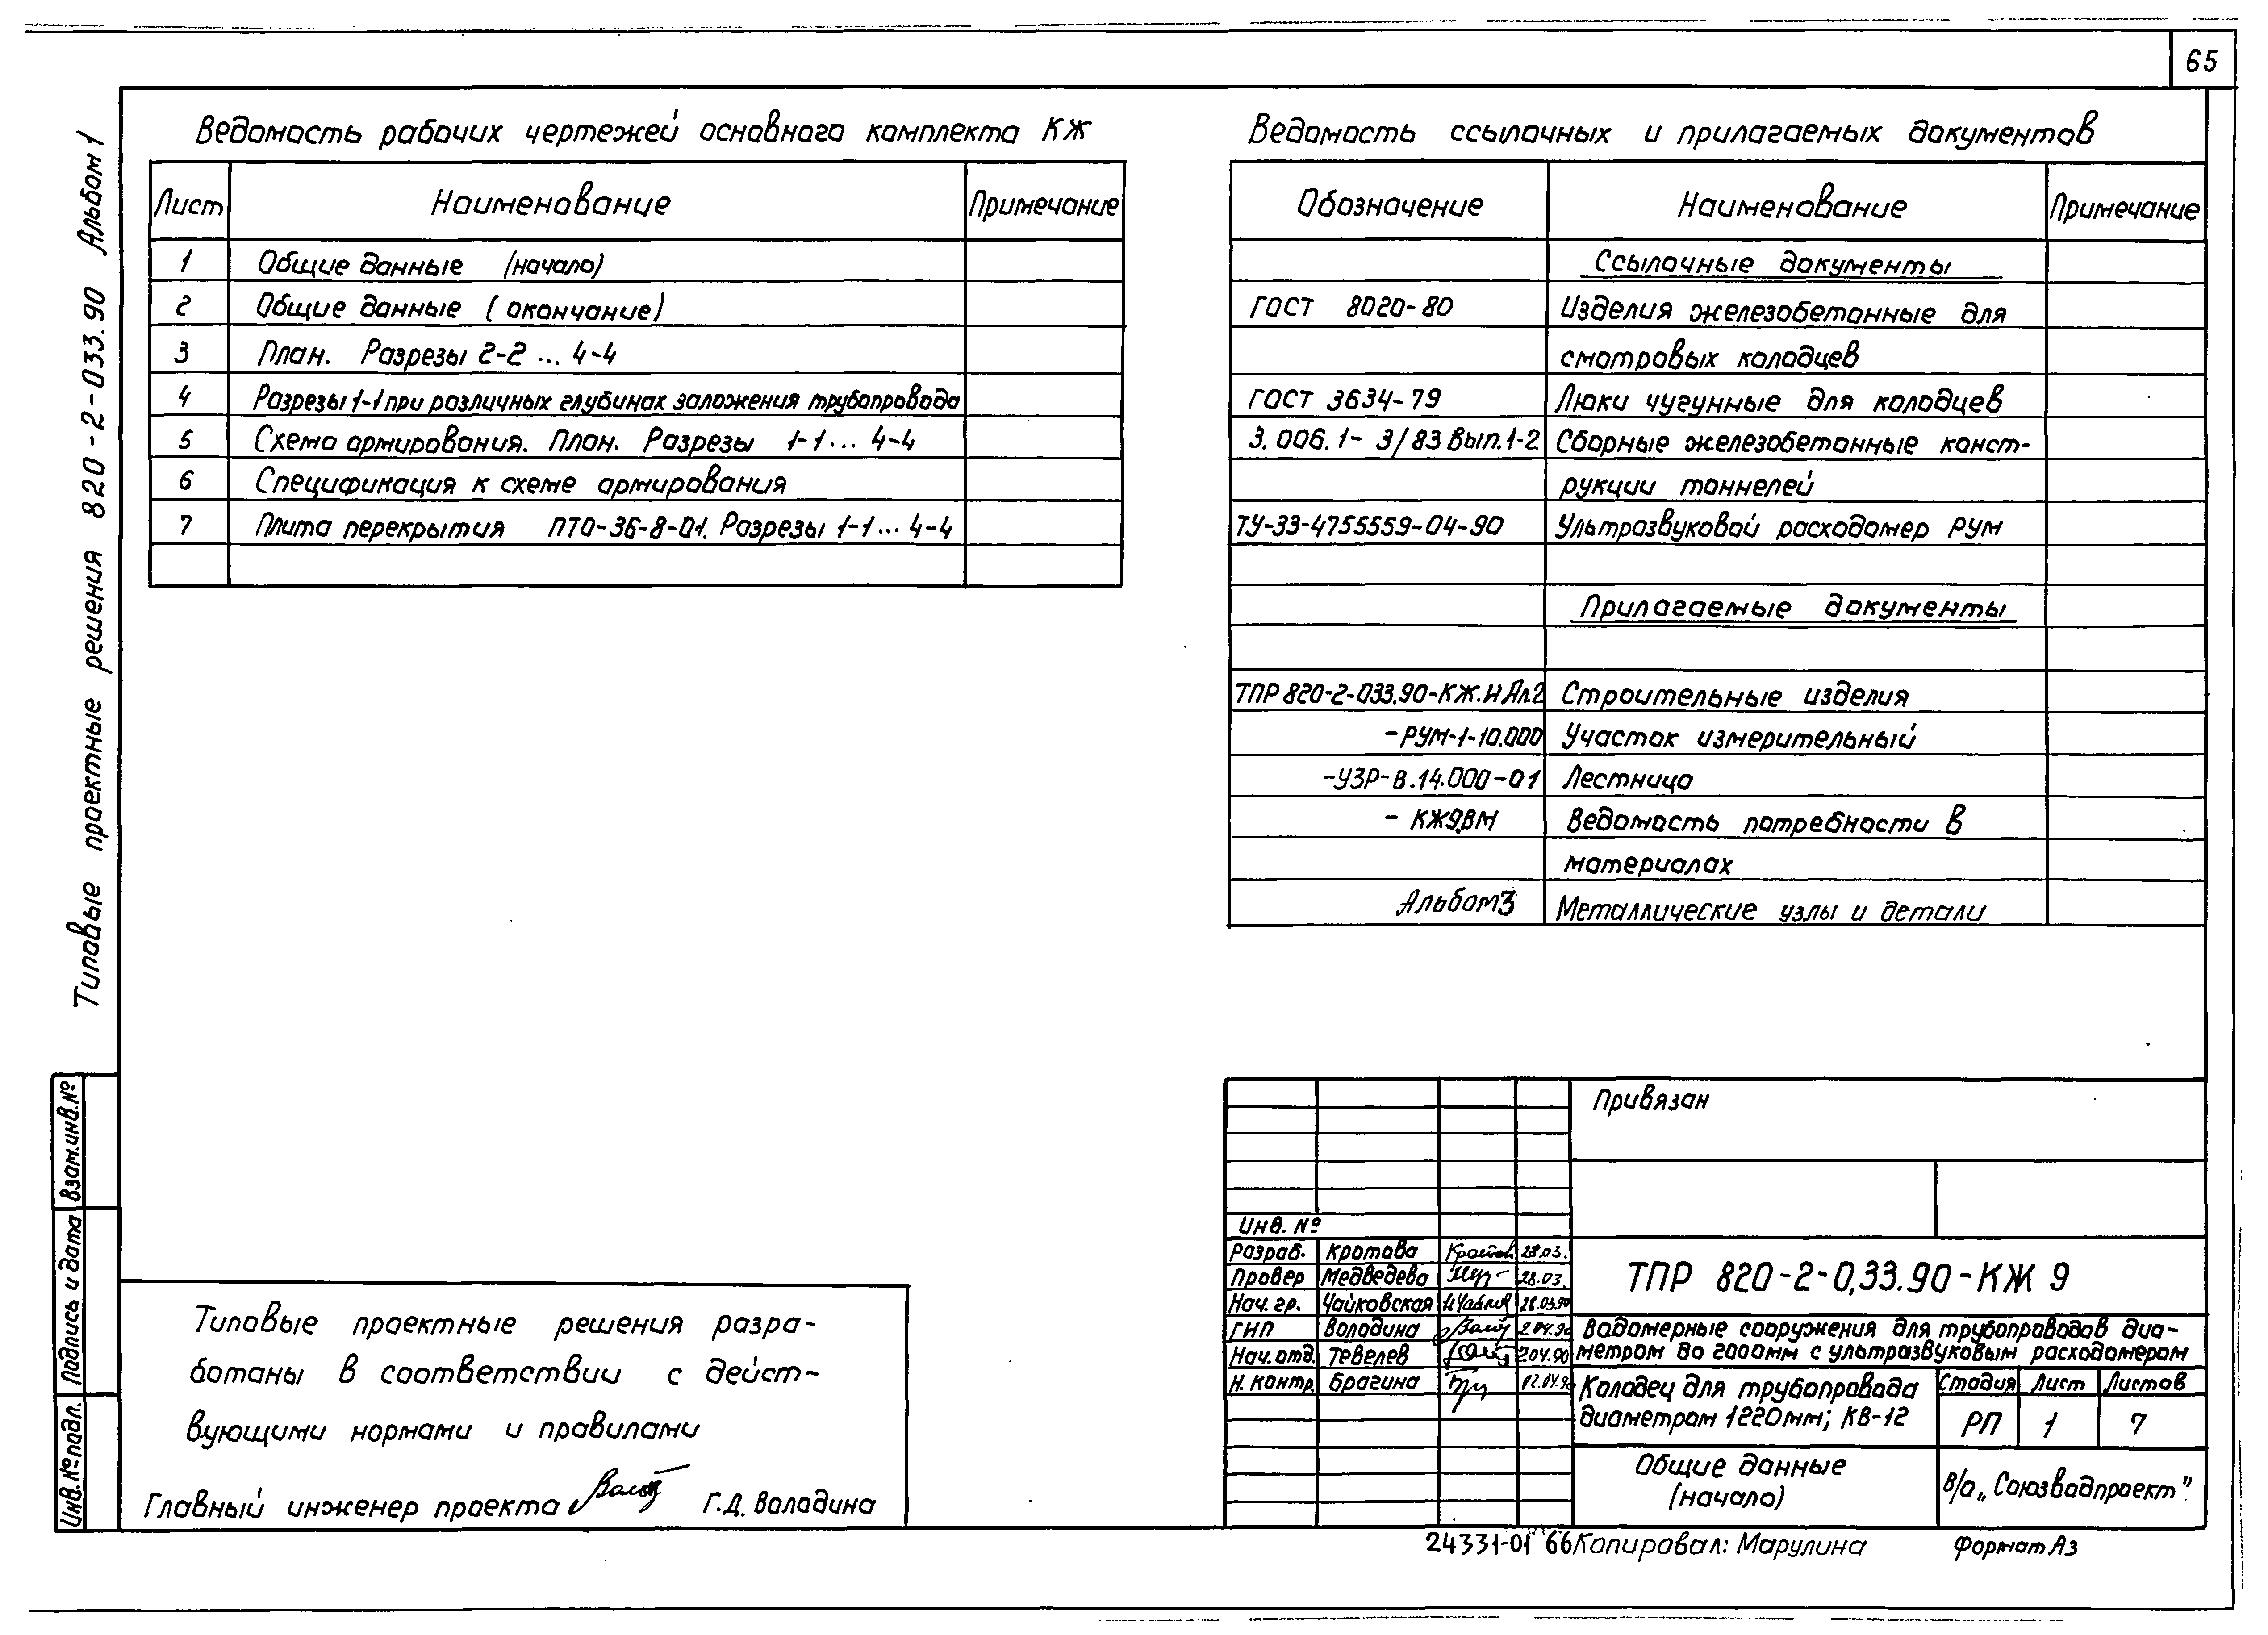 65
Типовые проектные решения 820-2-033.90 Альбом 1
Ведомость рабочих чертежей основного комплекта КЖ
Лист Наименование Примечание
1 Общие данные (начало)
2 Общие данные (окончание)
3 План. Разрезы 2-2 ... 4-4
4 Разрезы 1-1 при различных глубинах заложения трубопровода
5 Схема армирования. План. Разрезы 1-1 ... 4-4
6 Спецификация к схеме армирования
7 Плита перекрытия ПТО-36-8-01. Разрезы 1-1 ... 4-4
Ведомость ссылочных и прилагаемых документов
Обозначение Наименование Примечание
Ссылочные документы
ГОСТ 8020-80 Изделия железобетонные для
смотровых колодцев
ГОСТ 3634-79 Люки чугунные для колодцев
3.006.1-3/83 Вып.1-2 Сборные железобетонные конст-
рукции тоннелей
ТУ-33-4755559-04-90 Ультразвуковой расходомер РУМ
Прилагаемые документы
ТПР 820-2-033.90-КЖ.И Ал.2 Строительные изделия
-РУМ-1-10.000 Участок измерительный
-УЗР-В.14.000-01 Лестница
- КЖ9.ВМ Ведомость потребности в
материалах
Альбом 3 Металлические узлы и детали
Взам.инв.№
Подпись и дата
Инв.№ подл.
Типовые проектные решения разра-
ботаны в соответствии с дейст-
вующими нормами и правилами
Главный инженер проекта Г.Д. Володина
Привязан
Инв. №
Разраб. Кротова 28.03.
Провер Медведева 28.03.
Нач. гр. Чайковская 28.03.90
ГИП Володина 2.04.90
Нач. отд. Тевелев 2.04.90
Н. контр. Брагина 02.04.90
ТПР 820-2-0,33.90-КЖ 9
Водомерные сооружения для трубопроводов диа-
метром до 2000мм с ультразвуковым расходомером
Колодец для трубопровода
диаметром 1220мм; КВ-12
Стадия Лист Листов
РП 1 7
Общие данные
(начало)
В/о „Союзводпроект".
24331-01 66 Копировал: Марулина Формат А3